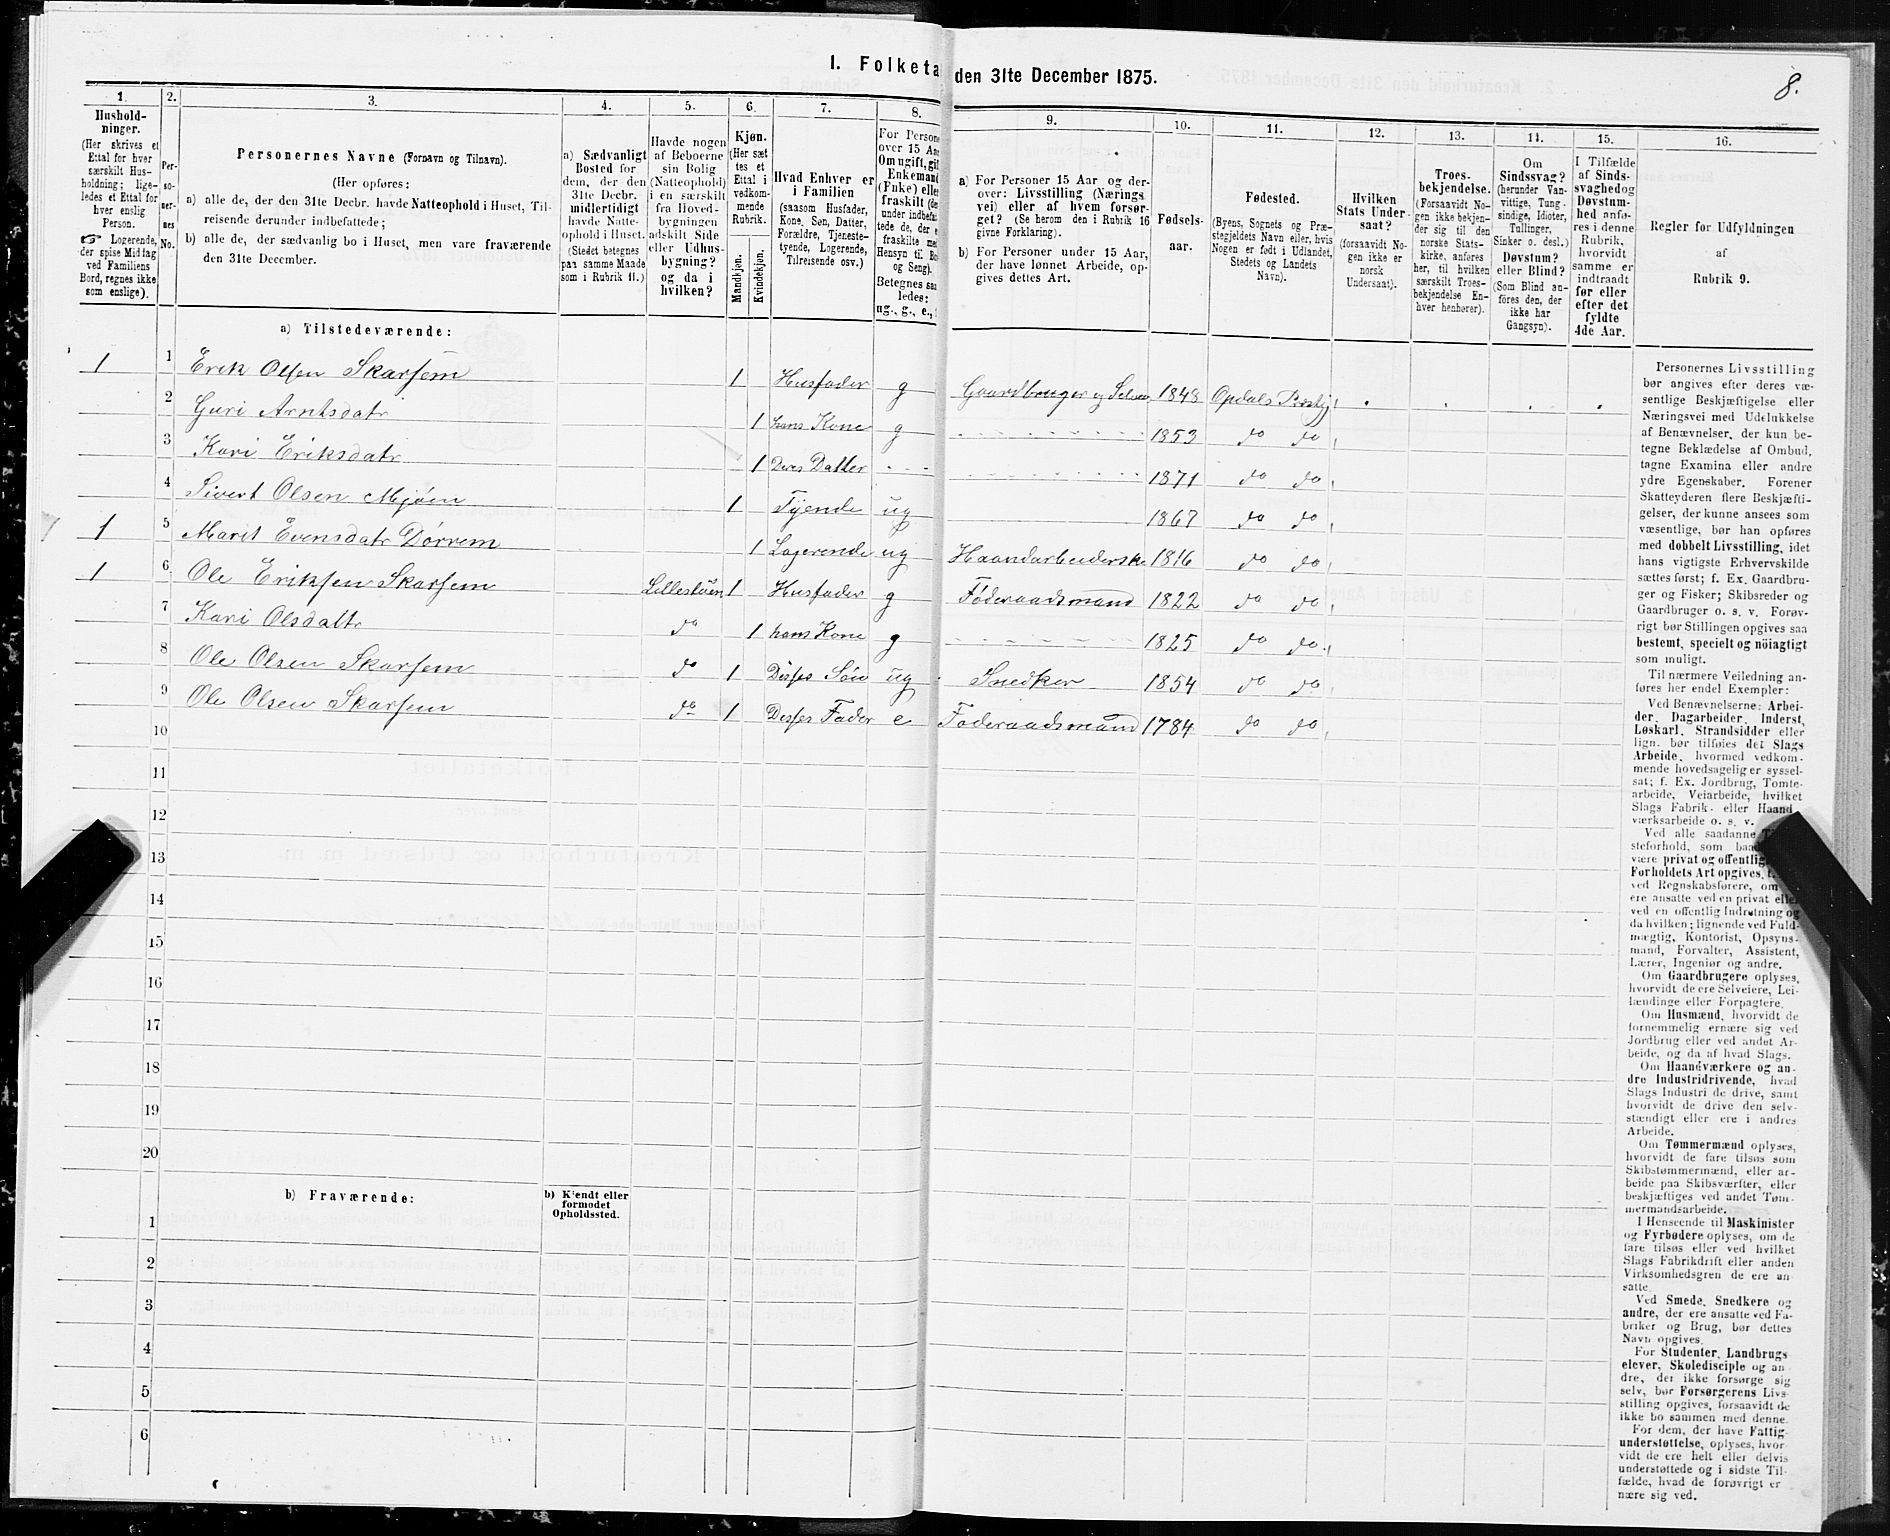 I. Folketa den 31te December 1875.
8.
1. 2. 3. 4. 5. 6. 7. 8. 9. 10. 11. 12. 13. 14. 15. 16.
Hushold-
ninger.
(Her skrives et
Ettal for hver
særskilt Hus-
holdning; lige-
ledes et Ettal for
hver enslig
Person.
☞ Logerende,
der spise Middag
ved Familiens
Bord, regnes ikke
som enslige).
Per-
so-
ner-
nes
No.
Personernes Navne (Fornavn og Tilnavn).
(Her opføres:
a) alle de, der den 31te Decbr. havde Natteophold i Huset, Til-
reisende derunder indbefattede;
b) alle de, der sædvanlig bo i Huset, men vare fraværende
den 31te December.
a) Sædvanligt
Bosted for
dem, der den
31te Decbr.
midlertidigt
havde Natte-
ophold i Huset.
(Stedet betegnes
paa samme Maade
som i Rubrik 11.)
Havde nogen
af Beboerne
sin Bolig
(Natteophold)
i en særskilt
fra Hoved-
bygningen
adskilt Side
eller Udhus-
bygning?
og da i
hvilken?
Kjøn.
(Her sæt
tes et
Ettal i
vedkom-
mende
Rubrik.
Mandkjøn.
Kvindekjøn.
Hvad Enhver er
i Familien
(saasom Husfader,
Kone, Søn, Datter,
Forældre, Tjeneste-
tyende, Logerende,
Tilreisende osv.)
For Persone
over 15 Aar
Om ugift, gif
Enkemand
(Enke) elle
fraskilt (de
under indbefat
tede de, der e
fraskilte med
Hensyn til Bo
og Seng).
Betegnes saa
ledes:
ug., g., e.,
a) For Personer 15 Aar og der-
over: Livsstilling (Nærings
vei) eller af hvem forsør-
get? (Se herom den i Rubrik 16
givne Forklaring).
b) For Personer under 15 Aar,
der have lønnet Arbeide, op-
gives dettes Art.
Fødsels-
aar.
Fødested.
(Byens, Sognets og Præ-
stegjeldets Navn eller, hvis
Nogen er født i Udlandet,
Stedets og Landets
Navn).
Hvilken
Stats Under-
saat?
(forsaavidt No-
gen ikke er
norsk
Undersaat).
Troes-
bekjendelse.
(Forsaavidt No-
gen ikke bekjen-
der sig til den
norske Stats-
kirke, anføres
her, til hvilken
særskilt Troes-
bekjendelse En-
hver henhører).
Om
Sindssvag?
(herunder Van-
vittige, Tung-
sindige, Idioter,
Tullinger,
Sinker o. desl.)
Døvstum?
eller Blind?
(Som Blind an-
føres den, der
ikke har
Gangsyn).
I Tilfælde
af Sinds-
svaghedog
Døvstum-
hed anfø-
res i denne
Rubrik,
hvorvidt
samme er
indtraadt
før eller
efter det
fyldte
4de Aar.
Regler for Udfyldningen
af
Rubrik 9.
a) Tilstedeværende:
1 1 Erik Olsen Skarsem 1 Husfader g Gaardbruger og Selveier 1848 Opdals Præstgj
2 Guri Arntsdatr 1 hans Kone g 1853 do do
3 Kari Eriksdatr 1 Deres Datter 1871 do do
4 Sivert Olsen Mjøen 1 Tjende ug 1867 do do
1 5 Marit Evensdatr Dørrem 1 Logerende ug Haandarbeiderske 1816 do do
1 6 Ole Eriksen Skarsem Lillestuen 1 Husfader g Føderaadsmand 1822 do do
7 Kari Olsdattr do 1 hans Kone g 1825 do do
8 Ole Olsen Skarsem do 1 Disses Søn ug Snedker 1854 do do
9 Ole Olsen Skarsem do 1 Disses Fader e Føderaadsmand 1784 do do
10
11
12
13
14
15
16
17
18
19
20
b) Fraværende:
b) Kjendt eller
formodet
Opholdssted.
1
2
3
4
5
6
Personernes Livsstilling
bør angives efter deres væ-
sentlige Beskjæftigelse eller
Næringsvei med Udelukkelse
af Benævnelser, der kun be-
tegne Beklædelse af Ombud,
tagne Examina eller andre
ydre Egenskaber. Forener
Skatteyderen flere Beskjæfti-
gelser, der kunne ansees som
væsentlige, bør han opføres
med dobbelt Livsstilling, idet
hans vigtigste Erhvervskilde
sættes først; f. Ex. Gaardbru-
ger og Fisker; Skibsreder og
Gaardbruger o. s. v. Forøv-
rigt bør Stillingen opgives saa
bestemt, specielt og nöiagtigt
som muligt.
Til nærmere Veiledning an-
føres her endel Exempler:
Ved Benævnelserne: Arbei-
der, Dagarbeider, Inderst,
Løskarl, Strandsidder eller
lign. bør tilføies det Slags
Arbeide, hvormed vedkom-
mende hovedsagelig er syssel-
sat; f. Ex. Jordbrug, Tomte-
arbeide, Veiarbeide, hvilket
Slags Fabrik- eller Haand
værksarbeide o. s. v.
Ved alle saadanne
steforhold, som baa
være privat og offentlig
Forholdets Art opgives,
ved Regnskabsførere, om
ere ansatte ved en privat elle
ved en offentlig Indretning og
da hvilken; lignende ved Fuld-
mægtig, Kontorist, Opsyns-
mand, Forvalter, Assistent,
Lærer, Ingeniør og andre.
Om Gaardbrugere oplyses,
hvorvidt de ere Selveiere, Lei-
lændinge eller Forpagtere.
Om Husmænd, hvorvidt de
fornemmelig ernære sig ved
Jordbrug eller ved andet Ar-
beide, og da af hvad Slags.
Om Haandværkere og an-
dre Industridrivende, hvad
Slags Industri de drive, samt
hvorvidt de drive den selv-
stændigt eller ere i andres
Arbeide.
Om Tømmermænd oplyses,
hvorvidt de fare tilsøs som
Skibstømmermænd, eller ar-
beide paa Skibsværfter, eller
beskjæftiges ved andet Tøm-
mermandsarbeide.
I Henseende til Maskinister
og Fyrbødere oplyses, om de
fare tilsøs eller ved hvilket
Slags Fabrikdrift eller anden
Virksomhedsgren de ere an-
satte.
Ved Smede, Snedkere og
andre, der ere ansatte ved Fa-
briker og Brug, bør dettes
Navn opgives.
For Studenter, Landbrugs
elever, Skoledisciple og an-
dre, der ikke forsørge sig
selv, bør Forsørgerens Livs-
stilling opgives, forsaavidt de
ikke bo sammen med denne.
For dem, der have Fattig-
understøttelse, oplyses, hvor-
vidt de ere helt eller delvis
understøttede og i sidste Til-
fælde, hvad de forøvrigt er
nære sig ved.